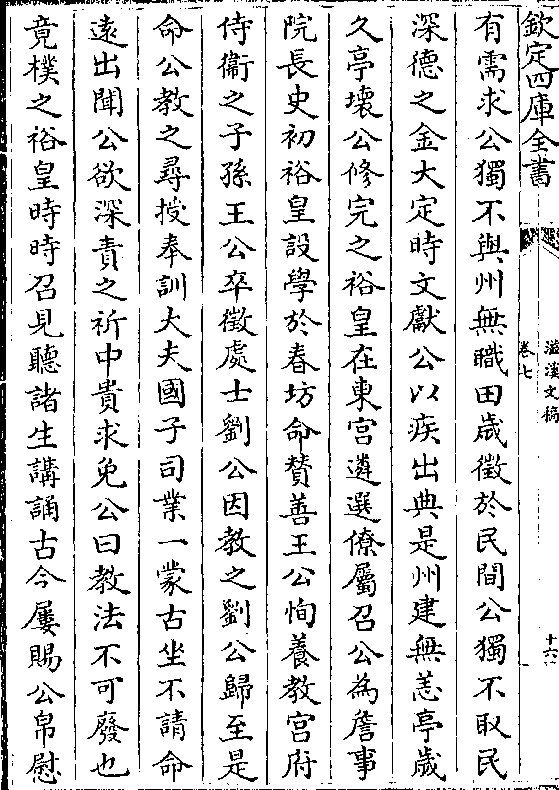 欽定四庫全書
滋溪文稿
卷七
十六
有需求公獨不與州無職田歲徵於民間公獨不取民
深德之金大定時文獻公以疾出典是州建無恙亭歲
久亭壞公修完之裕皇在東宮遴選僚屬召公為詹事
院長史初裕皇設學於春坊命贊善王公恂養教宮府
侍衞之子孫王公卒徵處士劉公因教之劉公歸至是
命公教之尋授奉訓大夫國子司業一蒙古生不請命
遠出聞公欲深責之祈中貴求免公曰教法不可廢也
竟樸之裕皇時時召見聽諸生講誦古今屢賜公帛慰